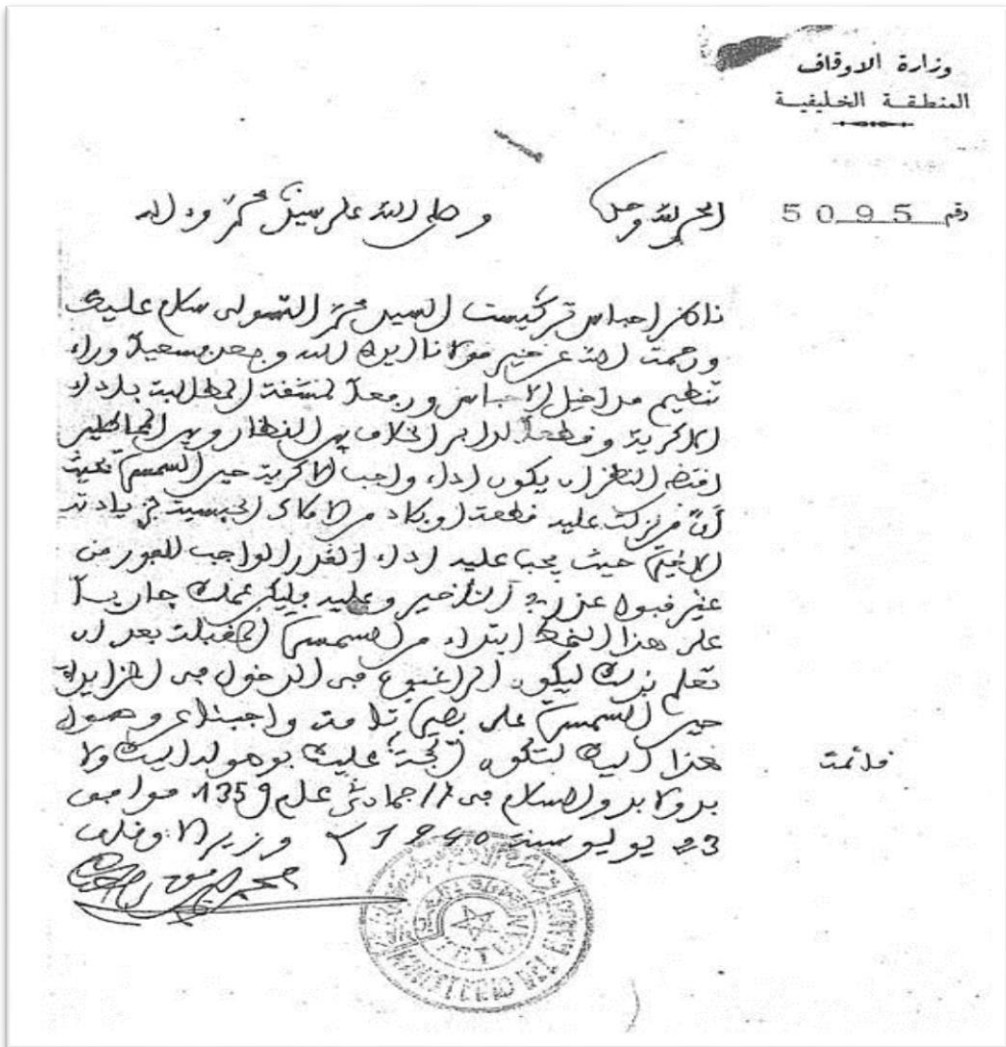 وزارة الاوقاف
المنطقة الخليفية
رقم 5095
الحمد لله وحده
وصلى الله على سيدنا محمد وءاله
ناظر احباس تركيست السيد محمد التسولى سلام عليك
ورحمت الله عن خير مولانا ايده الله وبعد سعيا وراء
تنظيم مداخيل الاحباس ورفعا لمشقة المطالبة باداء
الاكرية وقطعا لدابر الخلاف بين النظار وبين
اقتضى النظر ان يكون اداء واجب الاكرية حين السمسرة بحيث
ان من زادت عليه قطعة او بلاد من الاملاك الحبسية
حيث يجب عليه اداء القدر الواجب للفور من
غير قبول عذر في التأخير وعليه فليكن عملك جاريا
على هذا النمط ابتداء من السمسرة المقبلة بعد ان
تعلم بذلك ليكون الراغبون فى الدخول فى المزايدة
حين السمسرة على بصيرة تامة وصول
هذا اليك لتكون الحجة عليك ولا
بد ولا بد والسلام فى 11 جمادى عام 1359 موافق
يوليو سنة 1940 وزير الاوقاف
فائمت
TETUAN
MINISTERIO DEL